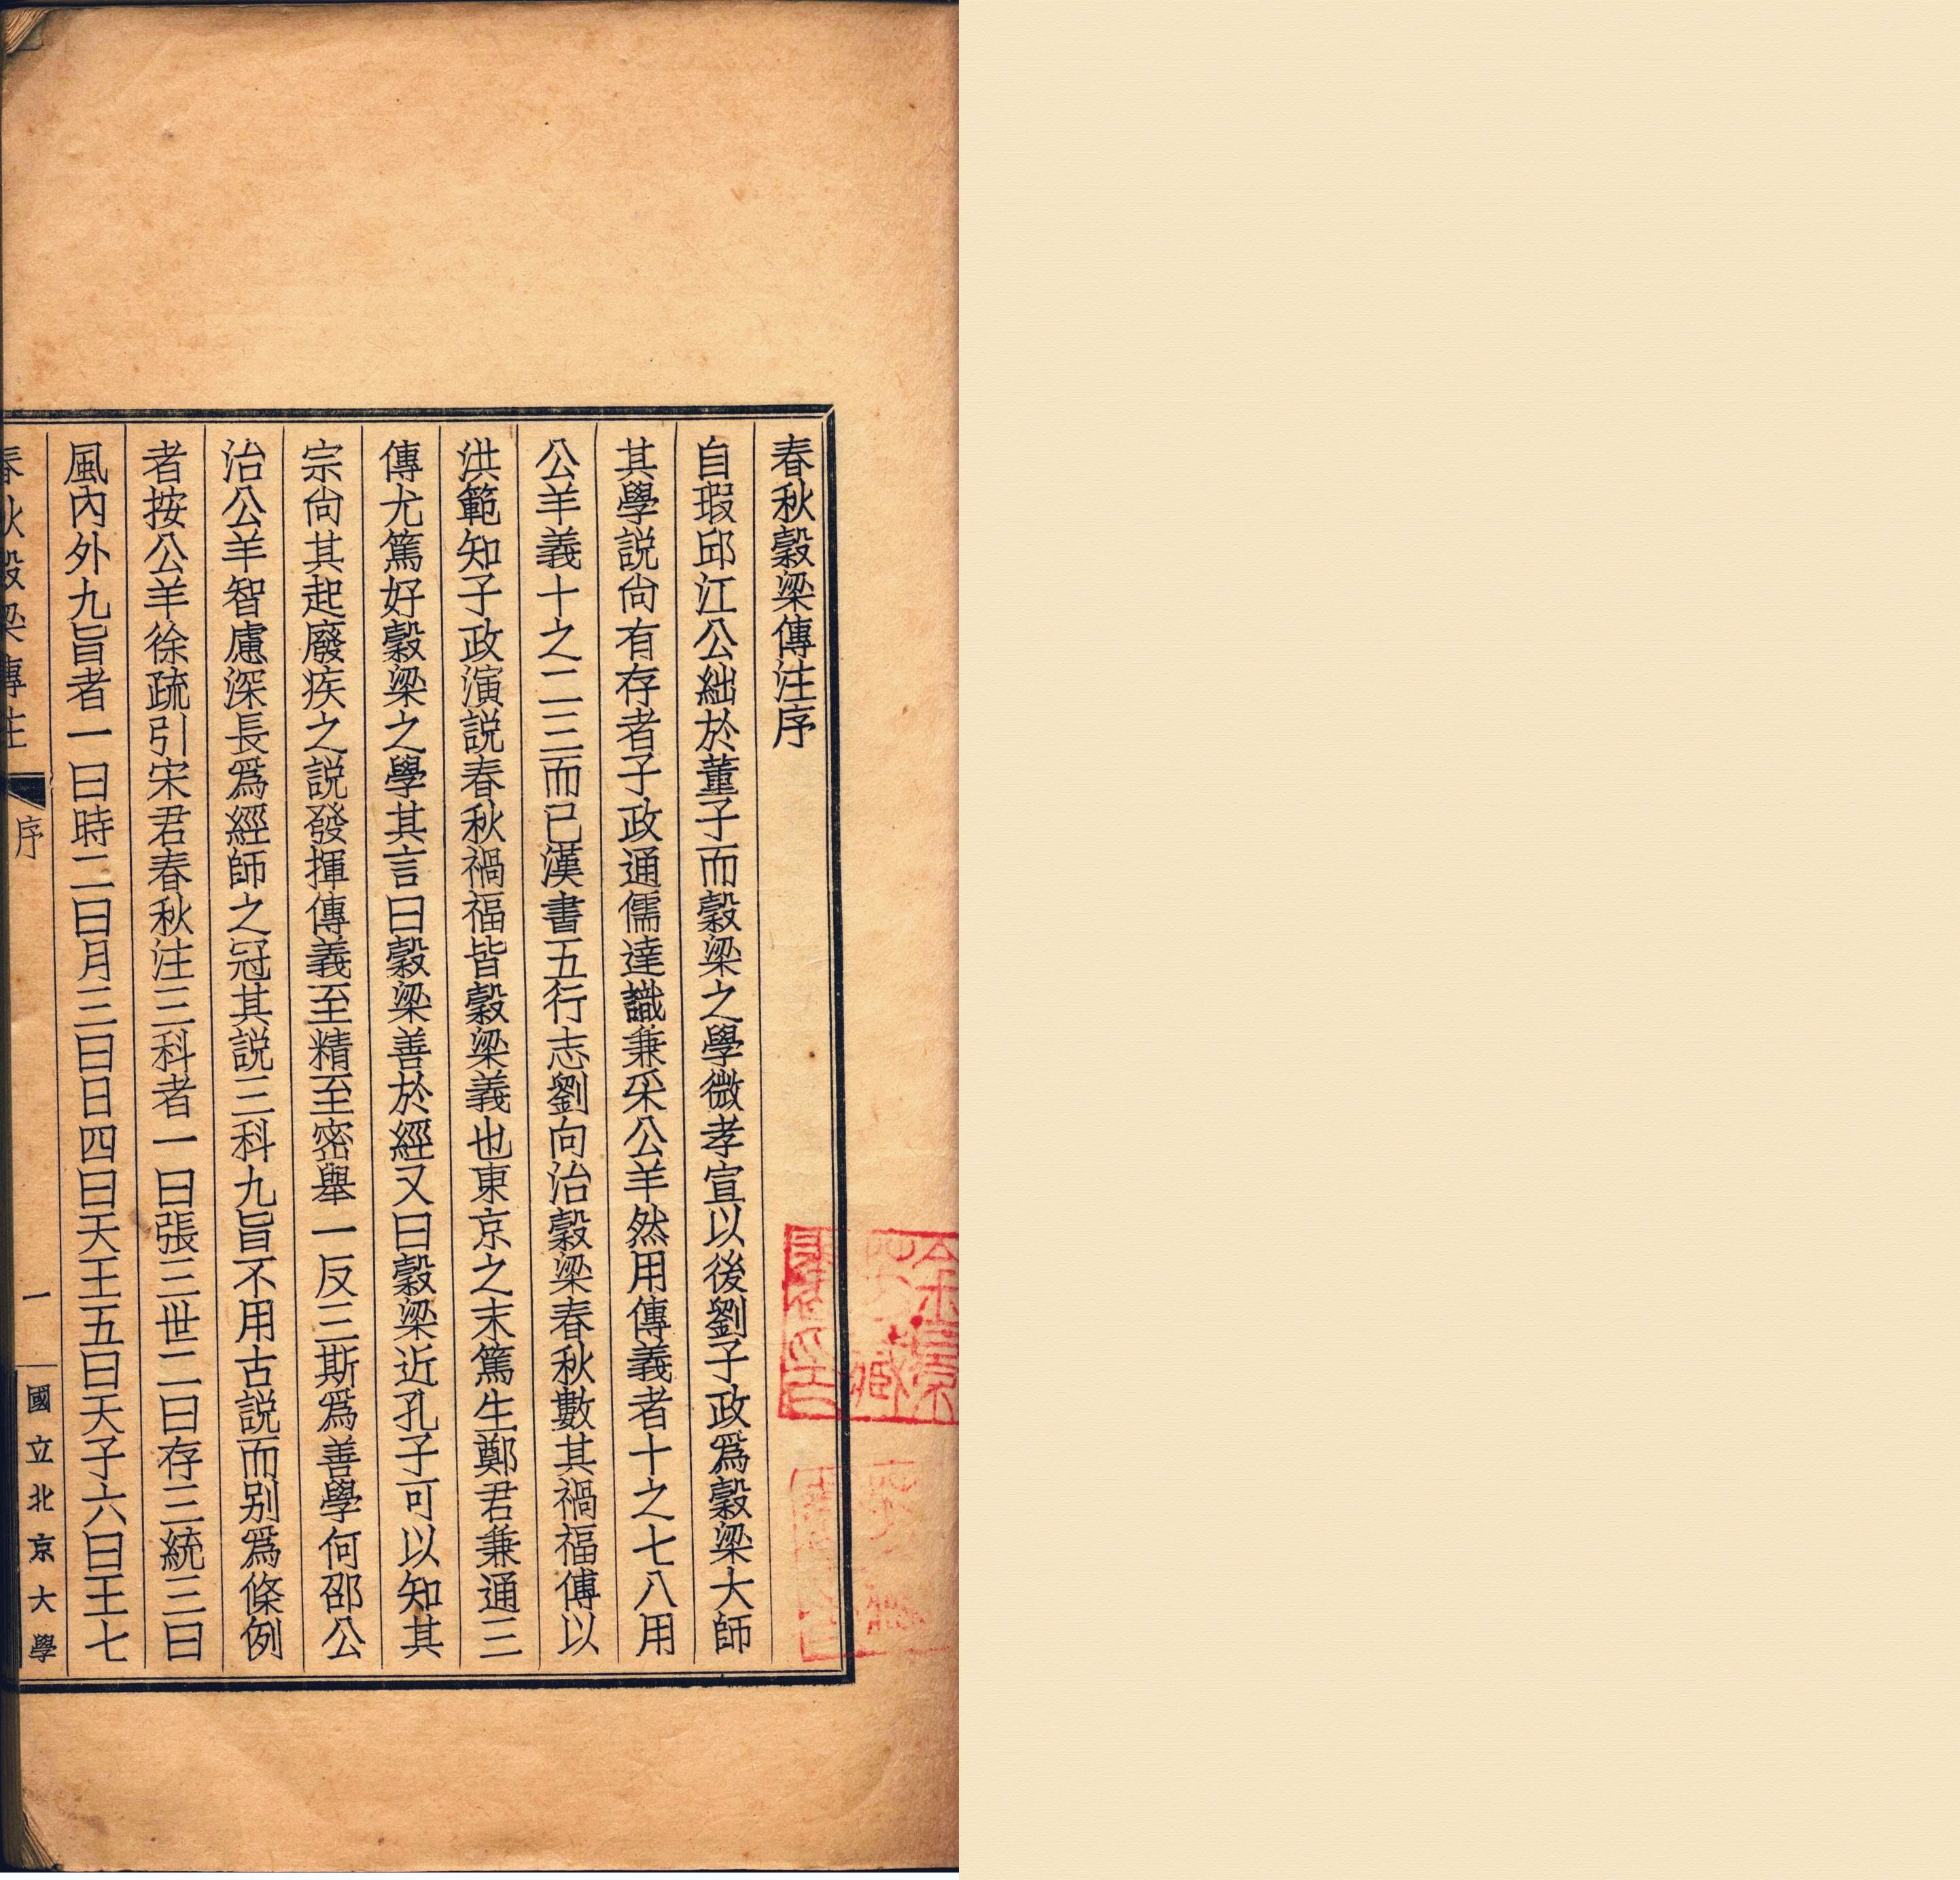 春秋穀梁傳注序
自瑕邱江公絀於董子而穀梁之學微孝宣以後劉子政爲穀梁大師
其學説尙有存者子政通儒達識兼采公羊然用傳義者十之七八用
公羊義十之二三而已漢書五行志劉向治穀梁春秋數其禍福傅以
洪範知子政演説春秋禍福皆穀梁義也東京之末篤生鄭君兼通三
傳尤篤好穀梁之學其言曰穀梁善於經又曰穀梁近孔子可以知其
宗尙其起廢疾之説發揮傳義至精至密舉一反三斯爲善學何邵公
治公羊智慮深長爲經師之冠其説三科九旨不用古説而别爲條例
者按公羊徐疏引宋君春秋注三科者一曰張三世二曰存三統三曰
風內外九旨者一曰時二曰月三曰日四曰天王五曰天子六曰王七
春秋穀梁傳注
序
一
國立北京大學